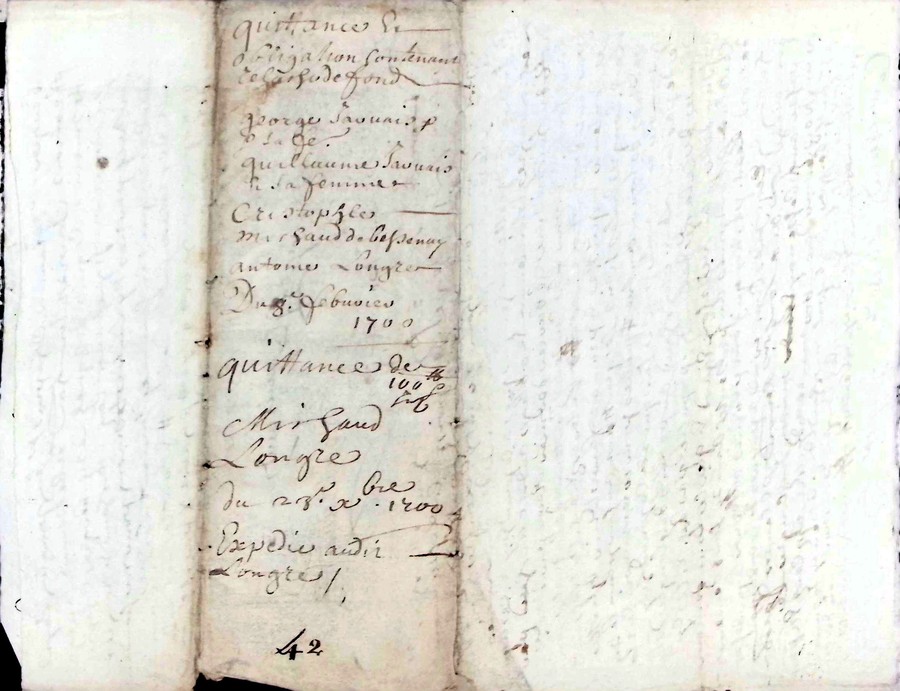 quittance &
obligation contenant
relacho de fond
george Jaouais p
guillaume Jaouais
& sa femme
Cristophle
Michaud de bessenay
antoine Longre
Du 8e. febvrier
1700
quittance de
100 tt
Michaud
Longre
du 23e. xbre 1700
Expedie audit
Longre /
42